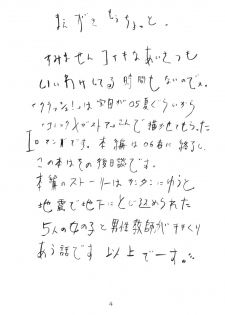 まえがき もうちょっと。
すみません コイキなあいさつも
いいわけしてる時間もないのでス。
「クラッシュ!」は 今日が05夏ぐらいから
「コミックXガストアさんで描かせてもらった
エロマンガです。本編は06春に終了し、
この本はその後日談です。
本篇のストーリーはカンタンにゆうと
地震で地下にとじ込められた
5人の女の子と男性教師がチチくり
あう話です 以上でーす。
4